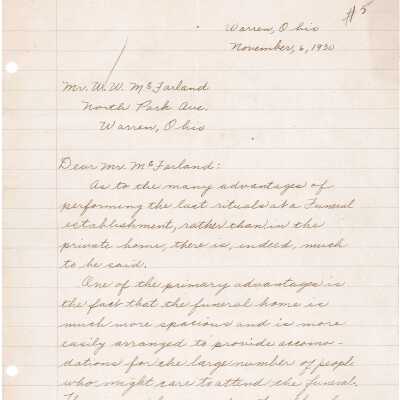 #5
Warren, Ohio
November, 6, 1930
Mr. W. W. McFarland
North Park Ave.
Warren, Ohio
Dear Mr. McFarland:
As to the many advantages of
performing the last rituals at a Funeral
establishment, rather than in the
private home, there is, indeed, much
to be said.
One of the primary advantages is
the fact that the funeral home is
much more spacious and is more
easily arranged to provide accomo-
dations for the large number of people
who might care to attend the funeral.